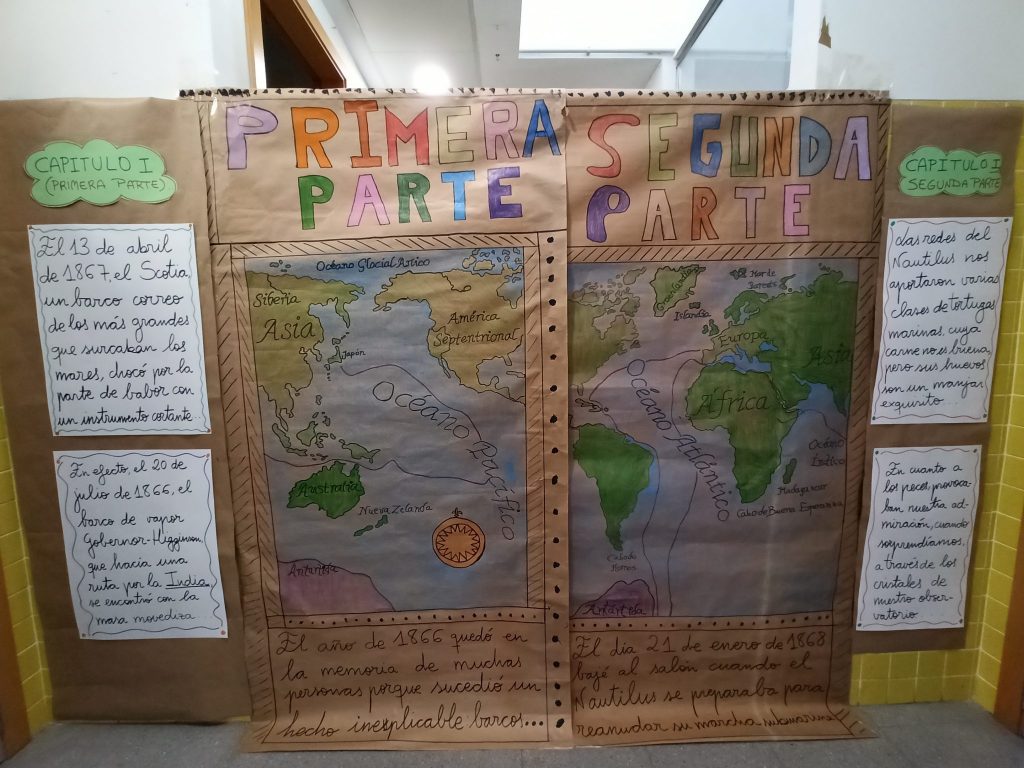 CAPITULO I
(PRIMERA PARTE)
El 13 de abril
de 1867, el Scotia,
un barco correo
de los más grandes
que surcaban los
mares, chocó por la
parte de babor con
un instrumento cortante...
En efecto, el 20 de
julio de 1866, el
barco de vapor
Gobernor-Higginson,
que hacia una
ruta por la India,
se encontró con la
masa movediza...
PRIMERA
PARTE
Océano Glacial Artico
Siberia
Asia
Japón
América
Septentrional
Océano Pacífico
Australia
Nueva Zelanda
Antártida
El año de 1866 quedó en
la memoria de muchas
personas porque sucedió un
hecho inexplicable: barcos...
SEGUNDA
PARTE
Groenlandia
Mar de
Barents
Islandia
Europa
Asia
África
Océano Atlántico
Océano
Índico
Madagascar
Cabo de Buena Esperanza
Cabo de
Hornos
Antártida
El dia 21 de enero de 1868
bajé al salón cuando el
Nautilus se preparaba para
reanudar su marcha submarina
CAPITULO I
SEGUNDA PARTE
Las redes del
Nautilus nos
aportaron varias
clases de tortugas
marinas, cuya
carne no es buena,
pero sus huevos
son un manjar
exquisito...
En cuanto a
los peces, provoca-
ban nuestra ad-
miración, cuando
sorprendíamos,
a través de los
cristales de
nuestro obser-
vatorio